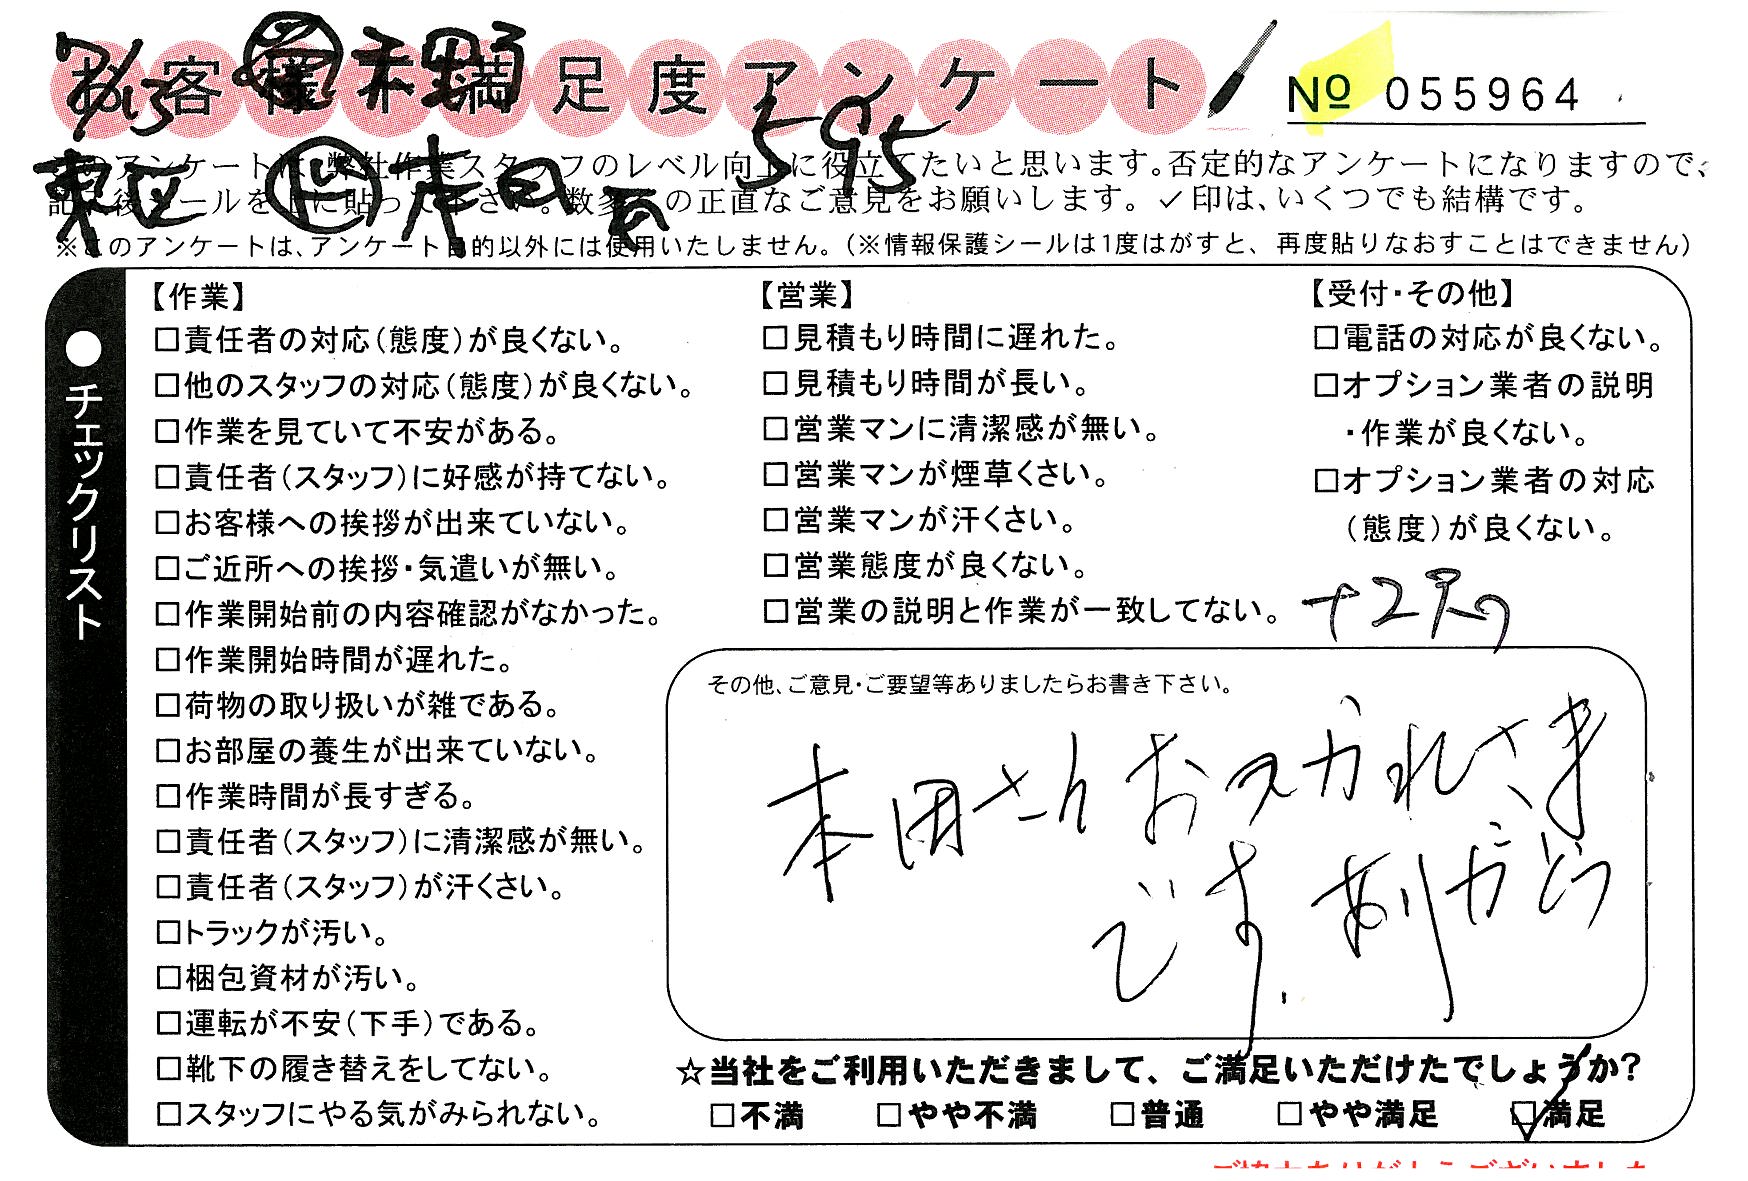 お客様不満足度アンケート
№ 055964
595
東区
本田
このアンケートは、弊社作業スタッフのレベル向上に役立てたいと思います。否定的なアンケートになりますので、
記入後シールを上に貼って下さい。数多くの正直なご意見をお願いします。✓印は、いくつでも結構です。
※このアンケートは、アンケート目的以外には使用いたしません。（※情報保護シールは1度はがすと、再度貼りなおすことはできません）
●チェックリスト
【作業】
□責任者の対応（態度）が良くない。
□他のスタッフの対応（態度）が良くない。
□作業を見ていて不安がある。
□責任者（スタッフ）に好感が持てない。
□お客様への挨拶が出来ていない。
□ご近所への挨拶・気遣いが無い。
□作業開始前の内容確認がなかった。
□作業開始時間が遅れた。
□荷物の取り扱いが雑である。
□お部屋の養生が出来ていない。
□作業時間が長すぎる。
□責任者（スタッフ）に清潔感が無い。
□責任者（スタッフ）が汗くさい。
□トラックが汚い。
□梱包資材が汚い。
□運転が不安（下手）である。
□靴下の履き替えをしてない。
□スタッフにやる気がみられない。
【営業】
□見積もり時間に遅れた。
□見積もり時間が長い。
□営業マンに清潔感が無い。
□営業マンが煙草くさい。
□営業マンが汗くさい。
□営業態度が良くない。
□営業の説明と作業が一致してない。
【受付・その他】
□電話の対応が良くない。
□オプション業者の説明
・作業が良くない。
□オプション業者の対応
（態度）が良くない。
その他、ご意見・ご要望等ありましたらお書き下さい。
本田さん おつかれさま
です. ありがとう
☆当社をご利用いただきまして、ご満足いただけたでしょうか？
□不満 □やや不満 □普通 □やや満足 ☑満足
ご協力ありがとうございました